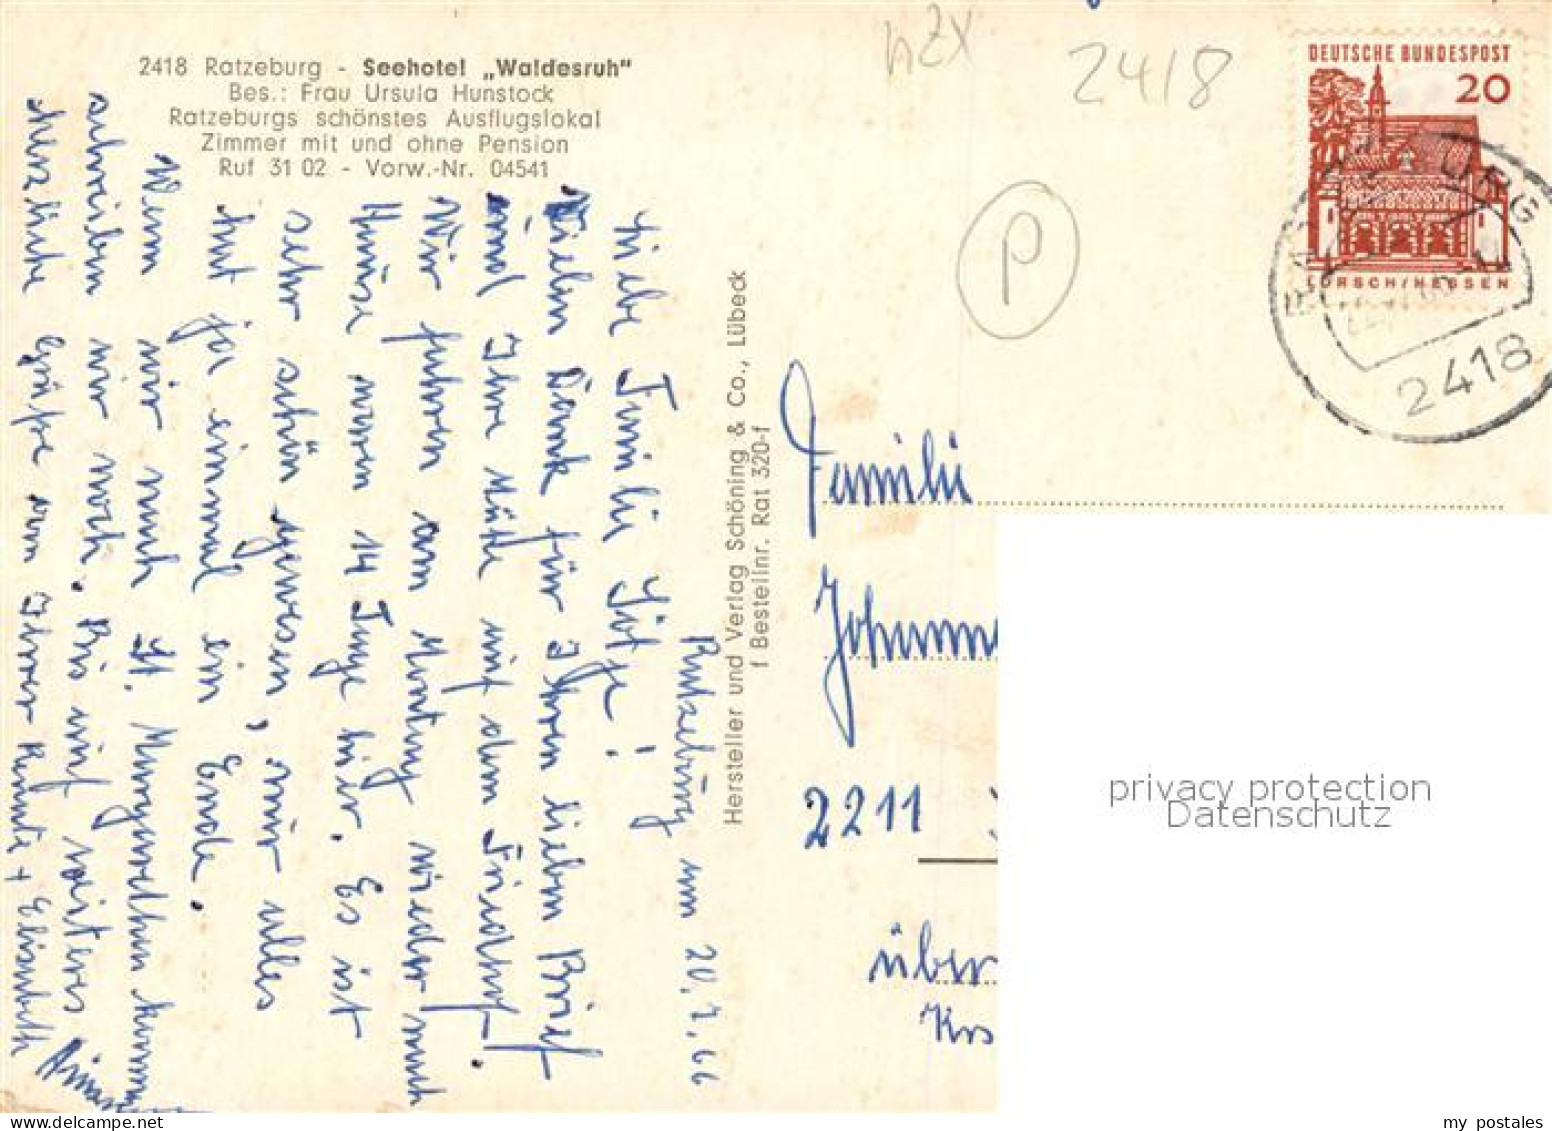 2418 Ratzeburg - Seehotel „Waldesruh"
Bes.: Frau Ursula Hunstock
Ratzeburgs schönstes Ausflugslokal
Zimmer mit und ohne Pension
Ruf 31 02 - Vorw.-Nr. 04541
Ratzeburg am 20.7.66
Liebe Familie
Vielen Dank für Ihren lieben Brief
und Ihre Mühe mit dem Friedhof.
Wir fahren am Montag wieder nach
Hause waren 14 Tage hier. Es ist
sehr schön gewesen, nur alles
hat ja einmal ein Ende.
Wenn wir nach St. Margarethen kommen
schreiben wir noch. Bis auf weiteres
herzliche Grüße von Ihrer + Elisabeth
Hersteller und Verlag Schöning & Co., Lübeck
f Bestellnr. Rat 320-f
hzx
2418
P
DEUTSCHE BUNDESPOST
20
LORSCH/HESSEN
2418
Familie
2211
über
Krs
privacy protection
Datenschutz
my postales